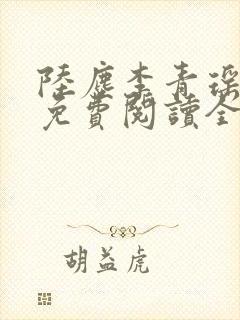 陸塵李青瑤
免費閱讀全
胡益虎